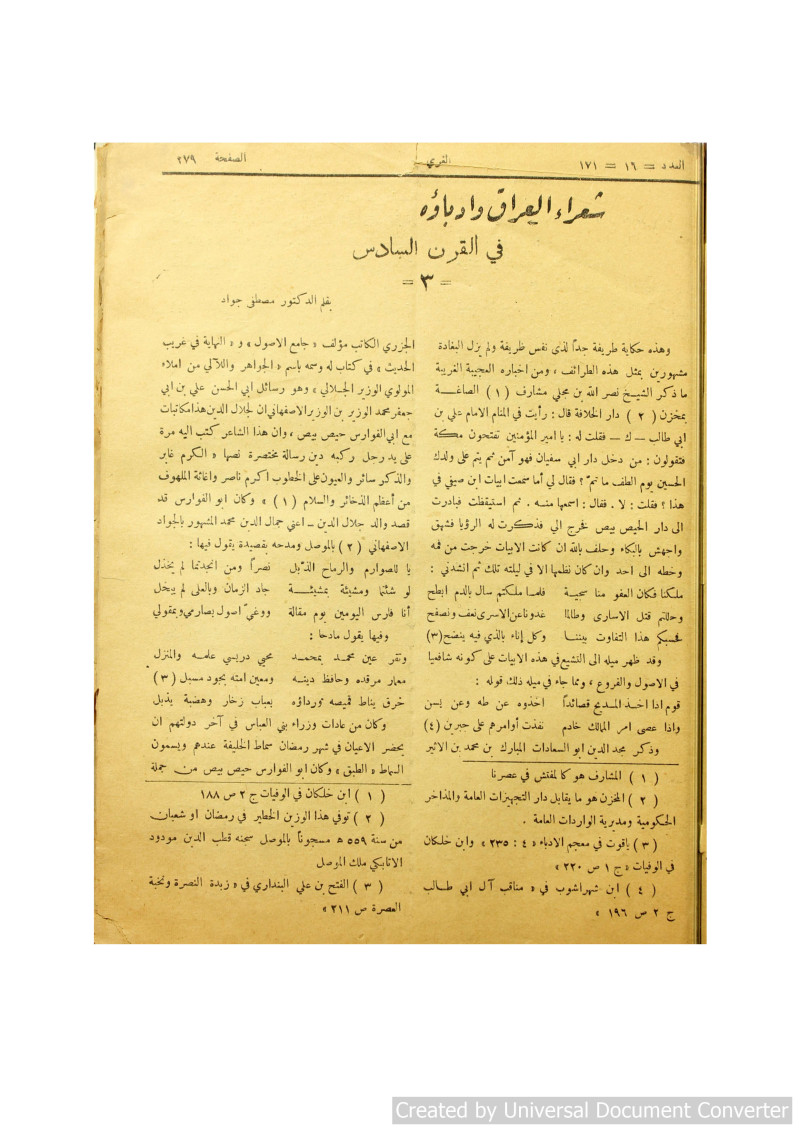 العدد = ١٦ = ١٧١
الغري
الصفحة ٢٧٩
شعراء العراق وادباؤه
في القرن السادس
= ٣ =
بقلم الدكتور مصطفى جواد
وهذه حكاية طريفة جداً لذى نفس ظريفة ولم يزل البغادة
مشهورين بمثل هذه الطرائف ، ومن اخباره العجيبة الغريبة
ما ذكر الشيخ نصر الله بن مجلي مشارف ( ١ ) الصاغة
بمخزن ( ٢ ) دار الخلافة قال : رأيت في المنام الامام علي بن
ابي طالب ـ ك ـ فقلت له : يا امير المؤمنين تفتحون مكة
فتقولون : من دخل دار ابي سفيان فهو آمن ثم يتم على ولدك
الحسين يوم الطف ما تم ؟ فقال لي أما سمعت ابيات ابن صيفي في
هذا ؟ فقلت : لا . فقال : اسمعها منه . ثم استيقظت فبادرت
الى دار الحيص بيص فخرج الي فذكرت له الرؤيا فشهق
واجهش بالبكاء وحلف بالله ان كانت الابيات خرجت من فمه
وخطه الى احد وان كان نظمها الا في ليلته تلك ثم انشدني :
ملكنا فكان العفو منا سجية فلما ملكتم سال بالدم ابطح
وحللتم قتل الاسارى وطالما غدونا عن الاسرى نعف ونصفح
فحسبكم هذا التفاوت بيننا وكل إناء بالذي فيه ينضح (٣)
وقد ظهر ميله الى التشيع في هذه الابيات على كونه شافعيا
في الاصول والفروع ، ومما جاء في ميله ذلك قوله :
قوم اذا اخذ المديح قصائداً اخذوه عن طه وعن يسن
واذا عصى امر الممالك خادم نفذت أوامرهم على جبرين (٤)
وذكر مجد الدين ابو السعادات المبارك بن محمد بن الاثير
( ١ ) المشارف هو كالمفتش في عصرنا
( ٢ ) المخزن هو ما يقابل دار التجهيزات العامة والمذاخر
الحكومية ومديرية الواردات العامة .
( ٣ ) ياقوت في معجم الادباء « ٤ : ٢٣٥ » وابن خلكان
في الوفيات « ج ١ ص ٢٢٠ »
( ٤ ) ابن شهراشوب في « مناقب آل ابي طالب
ج ٢ ص ١٩٦ »
الجزري الكاتب مؤلف « جامع الاصول » و « النهاية في غريب
الحديث » في كتاب له وسمه باسم « الجواهر واللآلي من املاء
المولوي الوزير الجلالي » وهو رسائل ابي الحسن علي بن ابي
جعفر محمد الوزير بن الوزير الاصفهاني ان لجلال الدين هذا مكاتبات
مع ابي الفوارس حيص بيص ، وان هذا الشاعر كتب اليه مرة
على يد رجل ركبه دين رسالة مختصرة نصها « الكرم غابر
والذكر سائر والعيون على الخطوب اكرم ناصر واغاثة الملهوف
من أعظم الذخائر والسلام ( ١ ) » وكان ابو الفوارس قد
قصد والد جلال الدين ـ اعني جمال الدين محمد المشهور بالجواد
الاصفهاني ( ٢ ) بالموصل ومدحه بقصيدة يقول فيها :
يا للصوارم والرماح الذبل نصراً ومن انجدتما لم يخذل
لو شئتما ومشيئة بمشيئة جاد الزمان وبالعلى لم يبخل
أنا فارس اليومين يوم مقالة ووغى اصول بصارمي وبمقولي
وفيها يقول مادحا :
وتقر عين محمد بمحمد محيي دريسي علمه والمنزل
معمار مرقده وحافظ دينه ومعين امته بجود مسبل ( ٣ )
خرق يناط قميصه ورداؤه بعباب زخار وهضبة يذبل
وكان من عادات وزراء بني العباس في آخر دولتهم ان
يحضر الاعيان في شهر رمضان سماط الخليفة عندهم ويسمون
السماط « الطبق » وكان ابو الفوارس حيص بيص من جملة
( ١ ) ابن خلكان في الوفيات ج ٢ ص ١٨٨
( ٢ ) توفي هذا الوزير الخطير في رمضان او شعبان
من سنة ٥٥٩ ه مسجوناً بالموصل سجنه قطب الدين مودود
الاتابكي ملك الموصل
( ٣ ) الفتح بن علي البنداري في « زبدة النصرة ونخبة
العصرة ص ٢١١ »
Created by Universal Document Converter